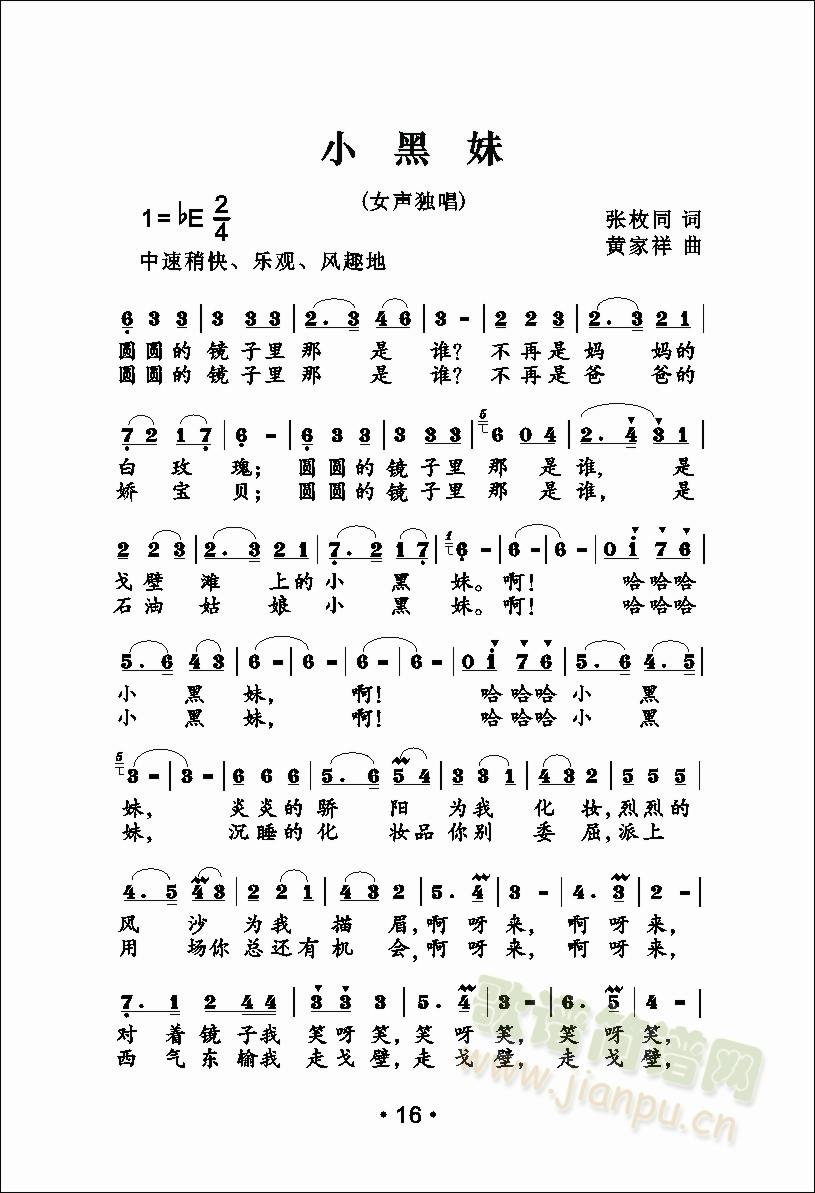 小 黑 妹
(女声独唱)
1=♭E 2/4
张枚同 词
黄家祥 曲
中速稍快、乐观、风趣地
6 3 3 | 3 3 3 | 2. 3 4 6 | 3 - | 2 2 3 | 2. 3 2 1 |
圆圆的 镜子里那 是 谁? 不再是妈 妈的
圆圆的 镜子里那 是 谁? 不再是爸 爸的
7 2 1 7 | 6 - | 6 3 3 | 3 3 3 | 5 6 0 4 | 2. 4 3 1 |
白 玫 瑰; 圆圆的 镜子里 那 是谁, 是
娇 宝 贝; 圆圆的 镜子里 那 是谁, 是
2 2 3 | 2. 3 2 1 | 7. 2 1 7 | 1 6 - | 6 - | 6 - | 0 i 7 6 |
戈壁 滩 上的小 黑 妹。啊! 哈哈哈
石油 姑 娘 小 黑 妹。啊! 哈哈哈
5. 6 4 3 | 6 - | 6 - | 6 - | 6 - | 0 i 7 6 | 5. 6 4. 5 |
小 黑 妹, 啊! 哈哈哈 小 黑
小 黑 妹, 啊! 哈哈哈 小 黑
5 3 - | 3 - | 6 6 6 | 5. 6 5 4 | 3 3 1 | 4 3 2 | 5 5 5 |
妹, 炎炎的 骄 阳 为我 化 妆,烈烈的
妹, 沉睡的 化 妆品 你别 委 屈,派上
4. 5 4 3 | 2 2 1 | 4 3 2 | 5. 4 | 3 - | 4. 3 | 2 - |
风 沙 为我 描 眉,啊 呀 来, 啊 呀 来,
用 场你 总还有 机 会,啊 呀 来, 啊 呀 来,
7. 1 2 4 4 | 3 3 3 | 5. 4 | 3 - | 6. 5 | 4 - |
对 着 镜 子我 笑 呀 笑,笑 呀 笑, 笑 呀 笑,
西 气 东 输我 走 戈 壁,走 戈 壁, 走 戈 壁,
歌谱简谱网
www.jianpu.cn
·16·